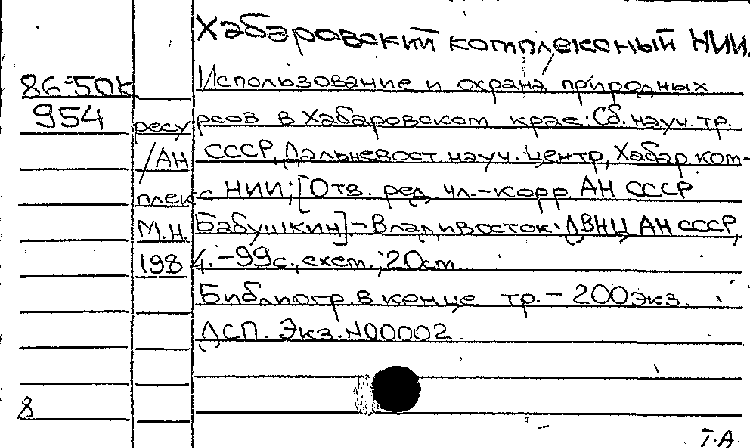 Хабаровский комплексный НИИ.
86-50к Использование и охрана природных
954 ресурсов в Хабаровском крае: Сб. науч. тр.
/АН СССР, Дальневост. науч. центр, Хабар. ком-
плекс НИИ; [Отв. ред. чл.-корр. АН СССР
М.Н. Бабушкин]-Владивосток: ДВНЦ АН СССР,
1984.-99с., схем.; 20см.
Библиогр. в конце тр.- 200экз.
ДСП. Экз. N00002
8
Т.А